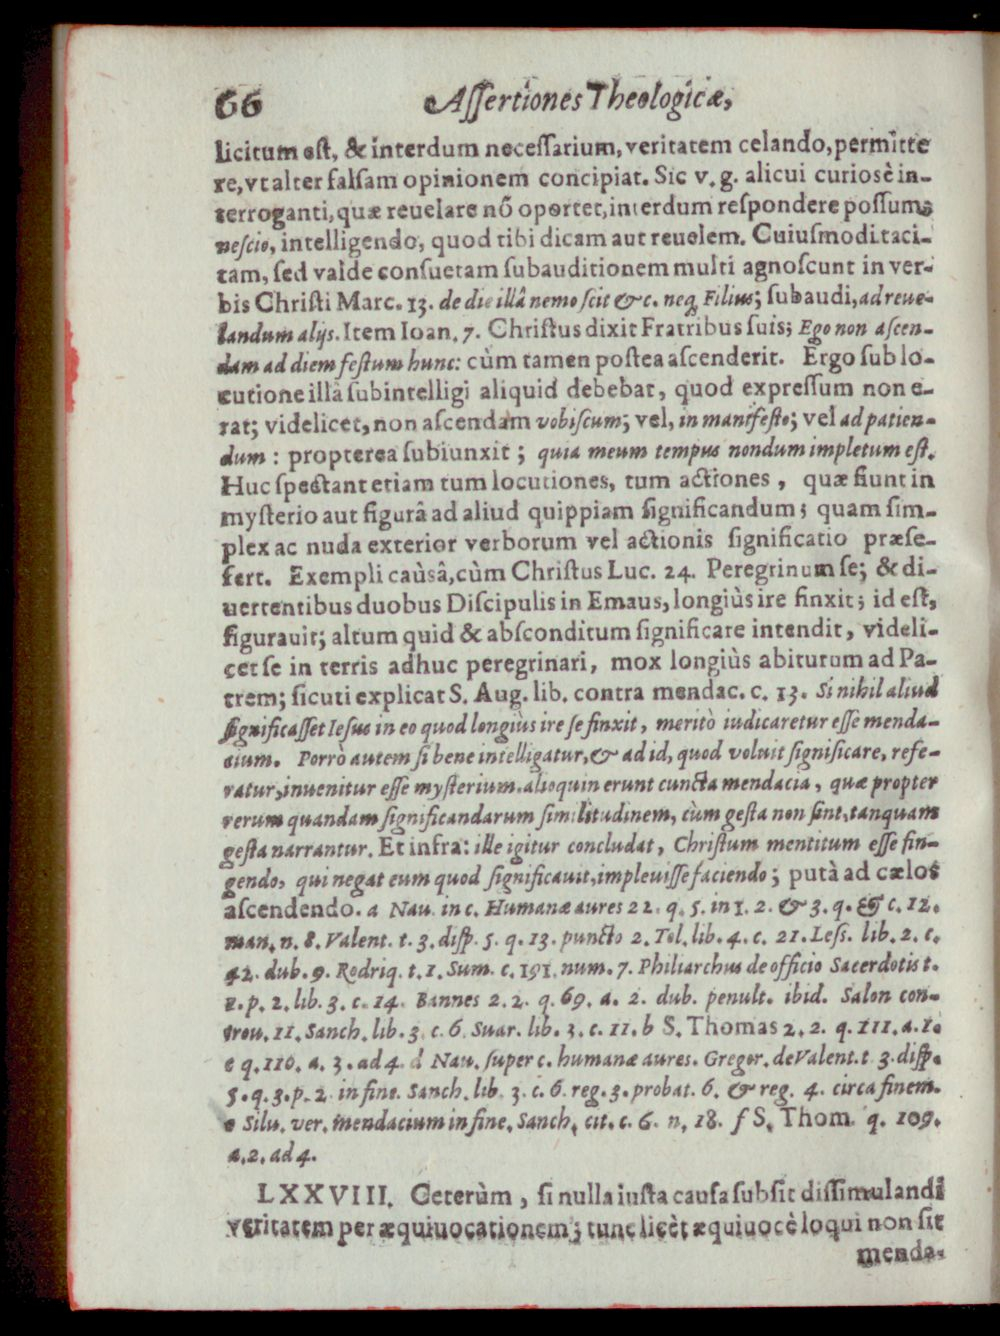 66 Aſſertiones Theologicæ,
licitum eſt, & interdum neceſſarium, veritatem celando, permitte
re, vt alter falſam opinionem concipiat. Sic v. g. alicui curiosè in-
terroganti, quæ reuelare nõ oportet, interdum reſpondere poſſum,
neſcio, intelligendo, quod tibi dicam aut reuelem. Cuiuſmodi taci-
tam, ſed valde conſuetam ſubauditionem multi agnoſcunt in ver-
bis Chriſti Marc. 13. de die illâ nemo ſcit &c. neq; Filius; ſubaudi, ad reue-
landum alijs. Item Ioan. 7. Chriſtus dixit Fratribus ſuis; Ego non aſcen-
dam ad diem feſtum hunc: cùm tamen poſtea aſcenderit. Ergo ſub lo-
cutione illâ ſubintelligi aliquid debebat, quod expreſſum non e-
rat; videlicet, non aſcendam vobiſcum; vel, in manifeſto; vel ad patien-
dum: propterea ſubiunxit; quia meum tempus nondum impletum eſt.
Huc ſpectant etiam tum locutiones, tum actiones, quæ fiunt in
myſterio aut figurâ ad aliud quippiam ſignificandum; quam ſim-
plex ac nuda exterior verborum vel actionis ſignificatio præſe-
fert. Exempli caùsâ, cùm Chriſtus Luc. 24. Peregrinum ſe; & di-
uertentibus duobus Diſcipulis in Emaus, longiùs ire finxit; id eſt,
figurauit; altum quid & abſconditum ſignificare intendit, videli-
cet ſe in terris adhuc peregrinari, mox longiùs abiturum ad Pa-
trem; ſicuti explicat S. Aug. lib. contra mendac. c. 13. Si nihil aliud
ſignificaſſet Ieſus in eo quod longiùs ire ſe finxit, meritò iudicaretur eſſe menda-
cium. Porrò autem ſi bene intelligatur, & ad id, quod voluit ſignificare, refe-
ratur, inuenitur eſſe myſterium. alioquin erunt cuncta mendacia, quæ propter
rerum quandam ſignificandarum ſimilitudinem, cùm geſta non ſint, tanquam
geſta narrantur. Et infra: ille igitur concludat, Chriſtum mentitum eſſe fin-
gendo, qui negat eum quod ſignificauit, impleuiſſe faciendo; putà ad cælos
aſcendendo. a Nau. in c. Humanæ aures 22. q. 5. in 1. 2. & 3. q. & c. 12.
man. n. 8. Valent. t. 3. diſp. 5. q. 13. puncto 2. Tol. lib. 4. c. 21. Leſſ. lib. 2. c.
42. dub. 9. Rodriq. t. 1. Sum. c. 191. num. 7. Philiarchus de officio Sacerdotis t.
1. p. 2. lib. 3. c. 14. Bannes 2. 2. q. 69. a. 2. dub. penult. ibid. Salon con-
trou. 11. Sanch. lib. 3. c. 6. Suar. lib. 3. c. 11. b S. Thomas 2. 2. q. 111. a. 1.
c q. 110. a. 3. ad 4. d Nau. ſuper c. humanæ aures. Gregor. de Valent. t. 3. diſp.
5. q. 3. p. 2. in fine. Sanch. lib. 3. c. 6. reg. 3. probat. 6. & reg. 4. circa finem.
e Silu. ver. mendacium in fine. Sanch. cit. c. 6. n. 18. f S. Thom. q. 109.
a. 2. ad 4.
LXXVIII. Ceterùm, ſi nulla iuſta cauſa ſubſit diſſimulandi
veritatem per æquiuocationem; tunc licèt æquiuocè loqui non ſit
menda-